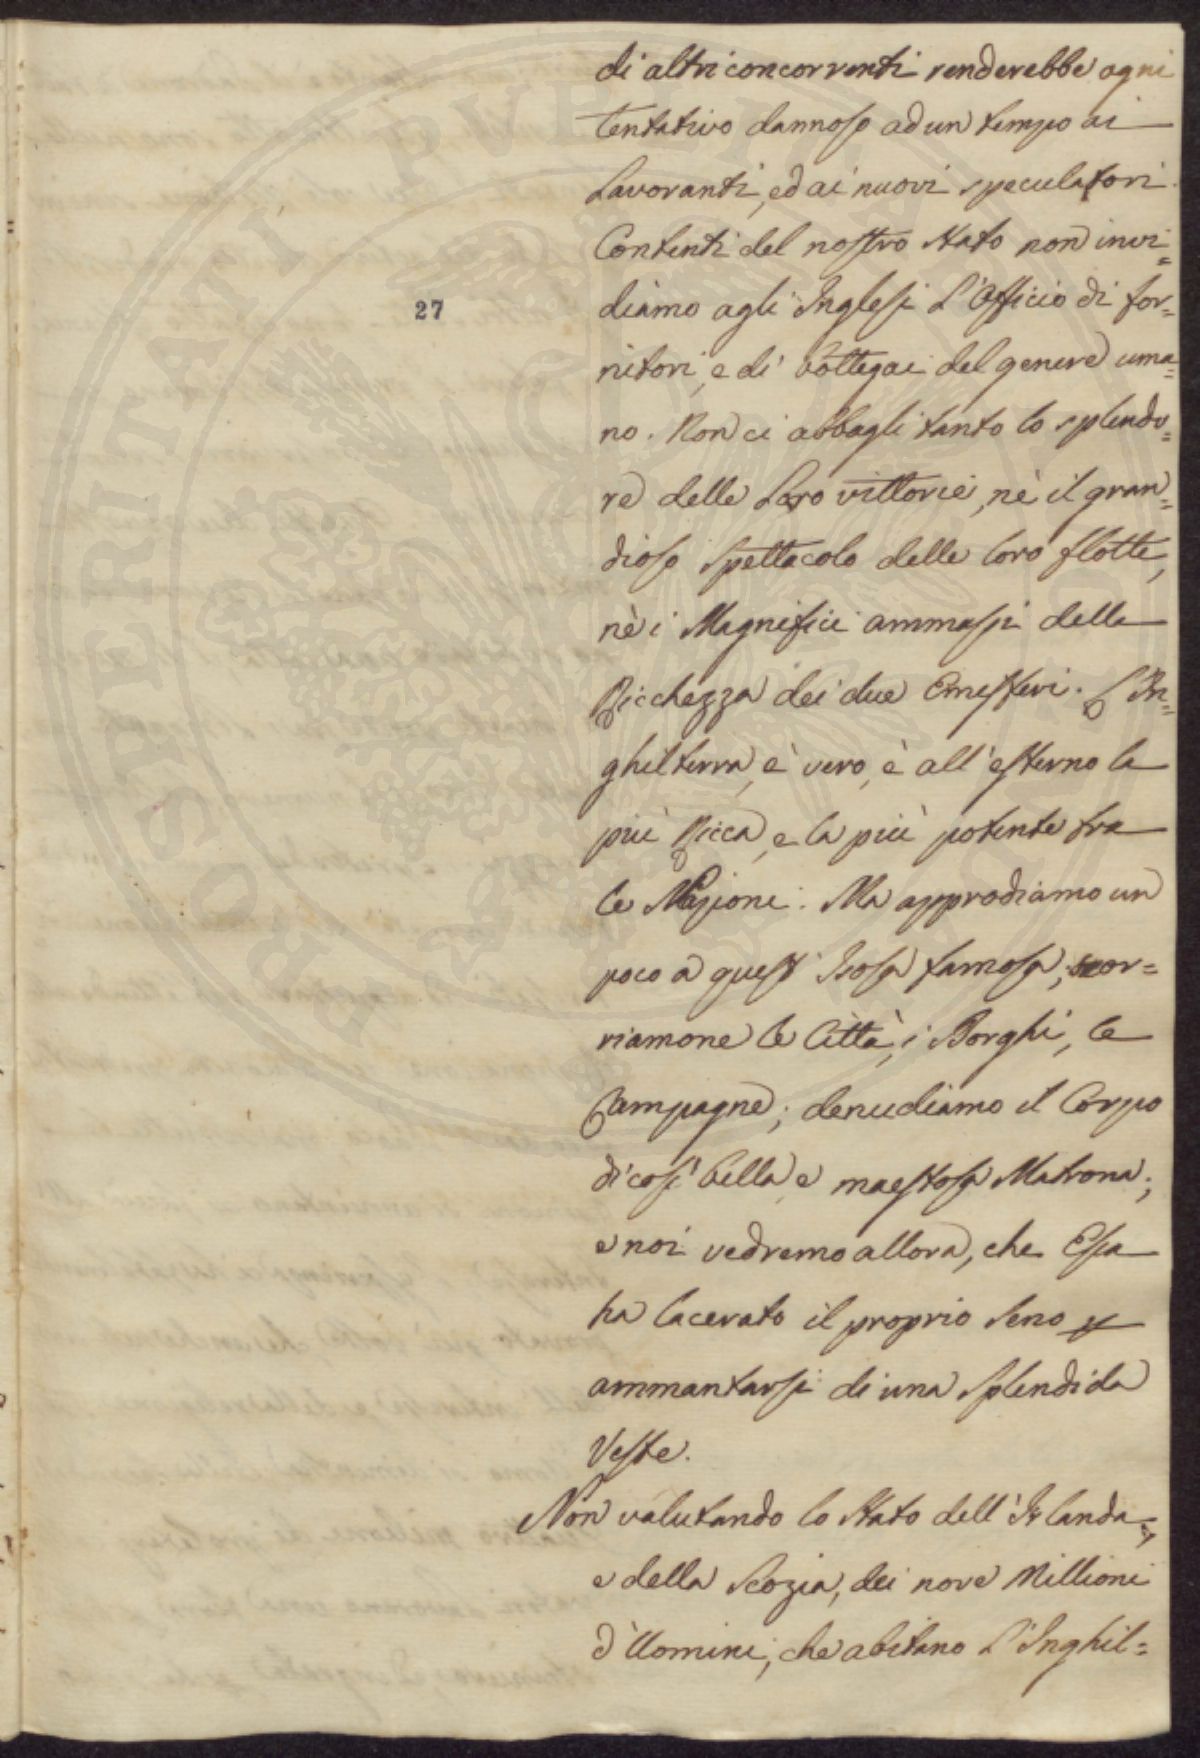 di altri concorrenti renderebbe ogni
tentativo dannoso ad un tempo ai
Lavoranti, ed ai nuovi speculatori.
Contenti del nostro Stato non invi=
diamo agli Inglesi L'Officio di for=
27
nitori, e di bottegai del genere uma=
no. Non ci abbagli tanto lo splendo=
re delle Loro vittorie, nè il gran=
dioso spettacolo delle loro flotte,
nè i Magnifici ammassi della
Ricchezza dei due Emisferi. L'In=
ghilterra, è vero, è all'esterno la
più Ricca, e la più potente tra
le Nazioni. Ma approdiamo un
poco a quest' Isola famosa, scor=
riamone le Città, i Borghi, le
Campagne; denudiamo il Corpo
di così bella e maestosa Matrona;
e noi vedremo allora, che Essa
ha lacerato il proprio seno per
ammantarsi di una splendida
Veste.
Non valutando lo Stato dell'Irlanda,
e della Scozia, dei nove Millioni
d'Uomini, che abitano L'Inghil=
PROSPERITATI PVBLICAE